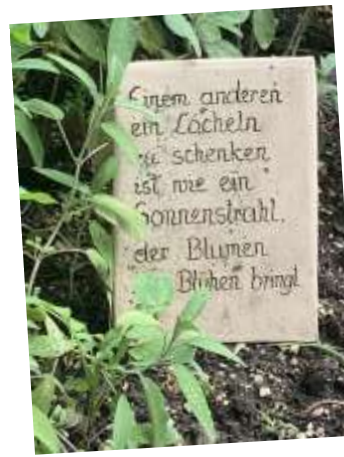 Einem anderen
ein Lächeln
zu schenken
ist wie ein
Sonnenstrahl,
der Blumen
Blühen bringt